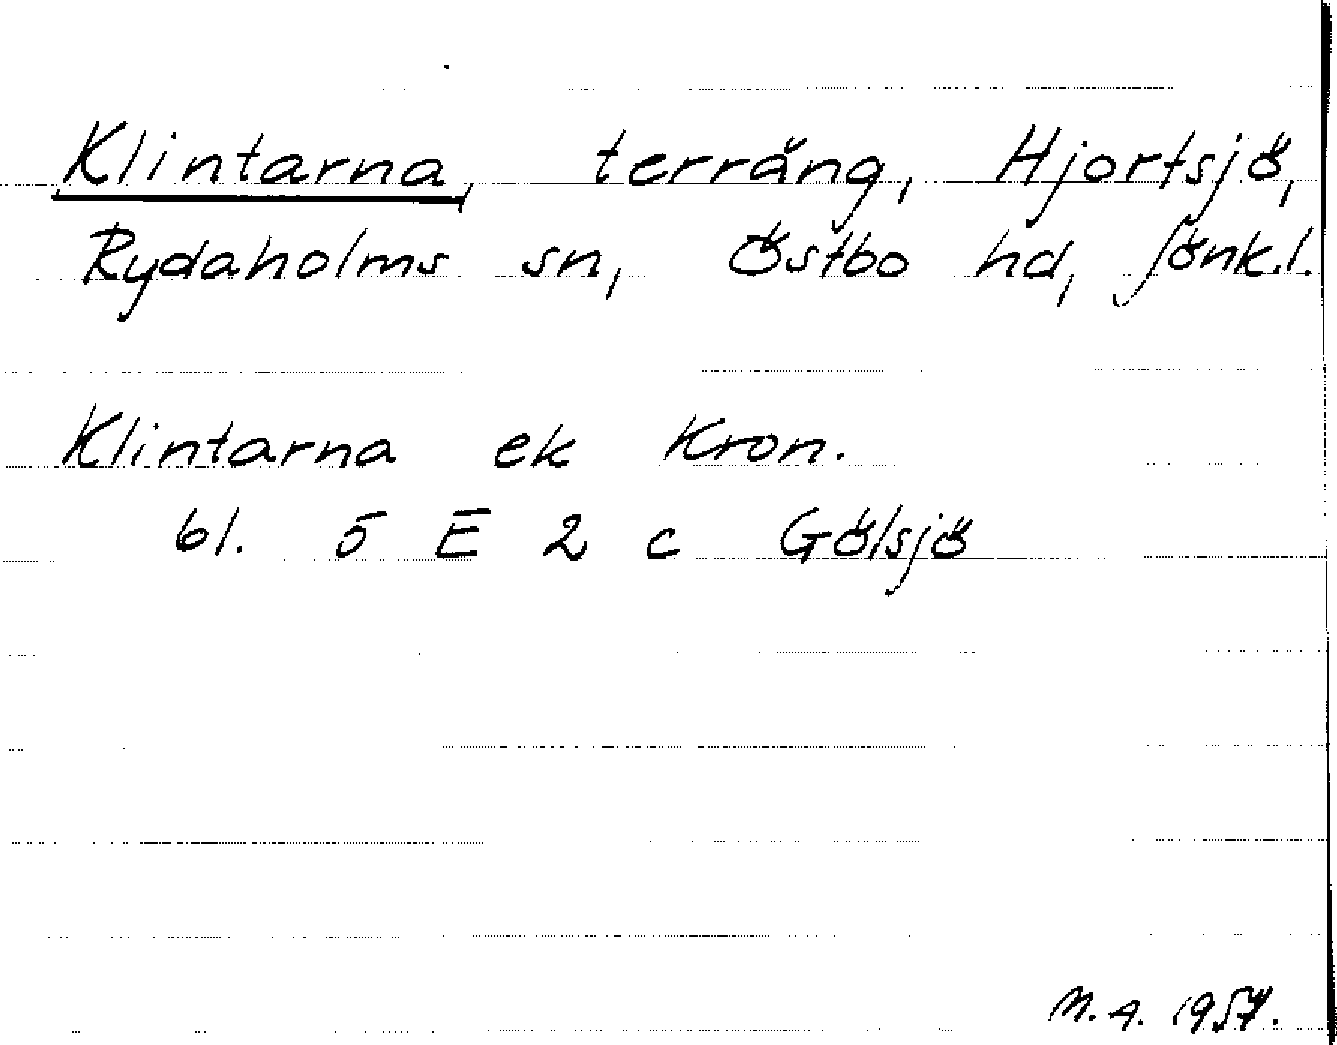 Klintarna, terräng, Hjortsjö,
Rydaholms sn, Östbo hd, Jönk.l.
Klintarna ek Kron.
bl. 5 E 2 c Gölsjö
M.A. 1957.